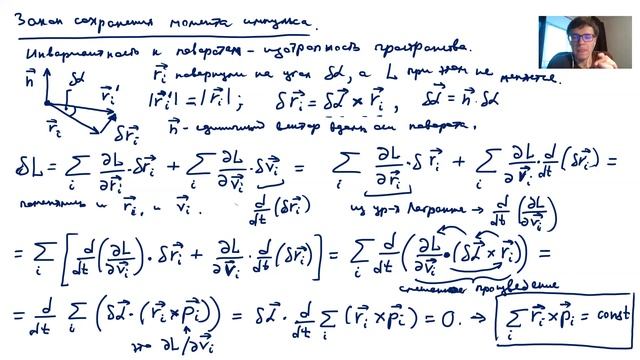 Закон сохранения момента импульса.
Инвариантность к поворотам – изотропность пространства.
n⃗ δα r⃗ᵢ' r⃗ᵢ δr⃗ᵢ
r⃗ᵢ повернули на угол δα, а L при этом не меняется.
|r⃗ᵢ'| = |r⃗ᵢ|; δr⃗ᵢ = δα⃗ × r⃗ᵢ, δα⃗ = n⃗·δα
n⃗ – единичный вектор вдоль оси поворота.
δL = ∑ᵢ ∂L/∂r⃗ᵢ · δr⃗ᵢ + ∑ᵢ ∂L/∂v⃗ᵢ · δv⃗ᵢ = ∑ᵢ ∂L/∂r⃗ᵢ · δr⃗ᵢ + ∑ᵢ ∂L/∂v⃗ᵢ · d/dt (δr⃗ᵢ) =
поменялись и r⃗ᵢ, и v⃗ᵢ. d/dt (δr⃗ᵢ) из ур-я Лагранжа → d/dt (∂L/∂v⃗ᵢ)
= ∑ᵢ [d/dt (∂L/∂v⃗ᵢ) · δr⃗ᵢ + ∂L/∂v⃗ᵢ · d/dt (δr⃗ᵢ)] = ∑ᵢ d/dt (∂L/∂v⃗ᵢ · (δα⃗ × r⃗ᵢ)) =
смешанное произведение
= d/dt ∑ᵢ (δα⃗ · (r⃗ᵢ × p⃗ᵢ)) = δα⃗ · d/dt ∑ᵢ (r⃗ᵢ × p⃗ᵢ) = 0. → ∑ᵢ r⃗ᵢ × p⃗ᵢ = const
это ∂L/∂v⃗ᵢ